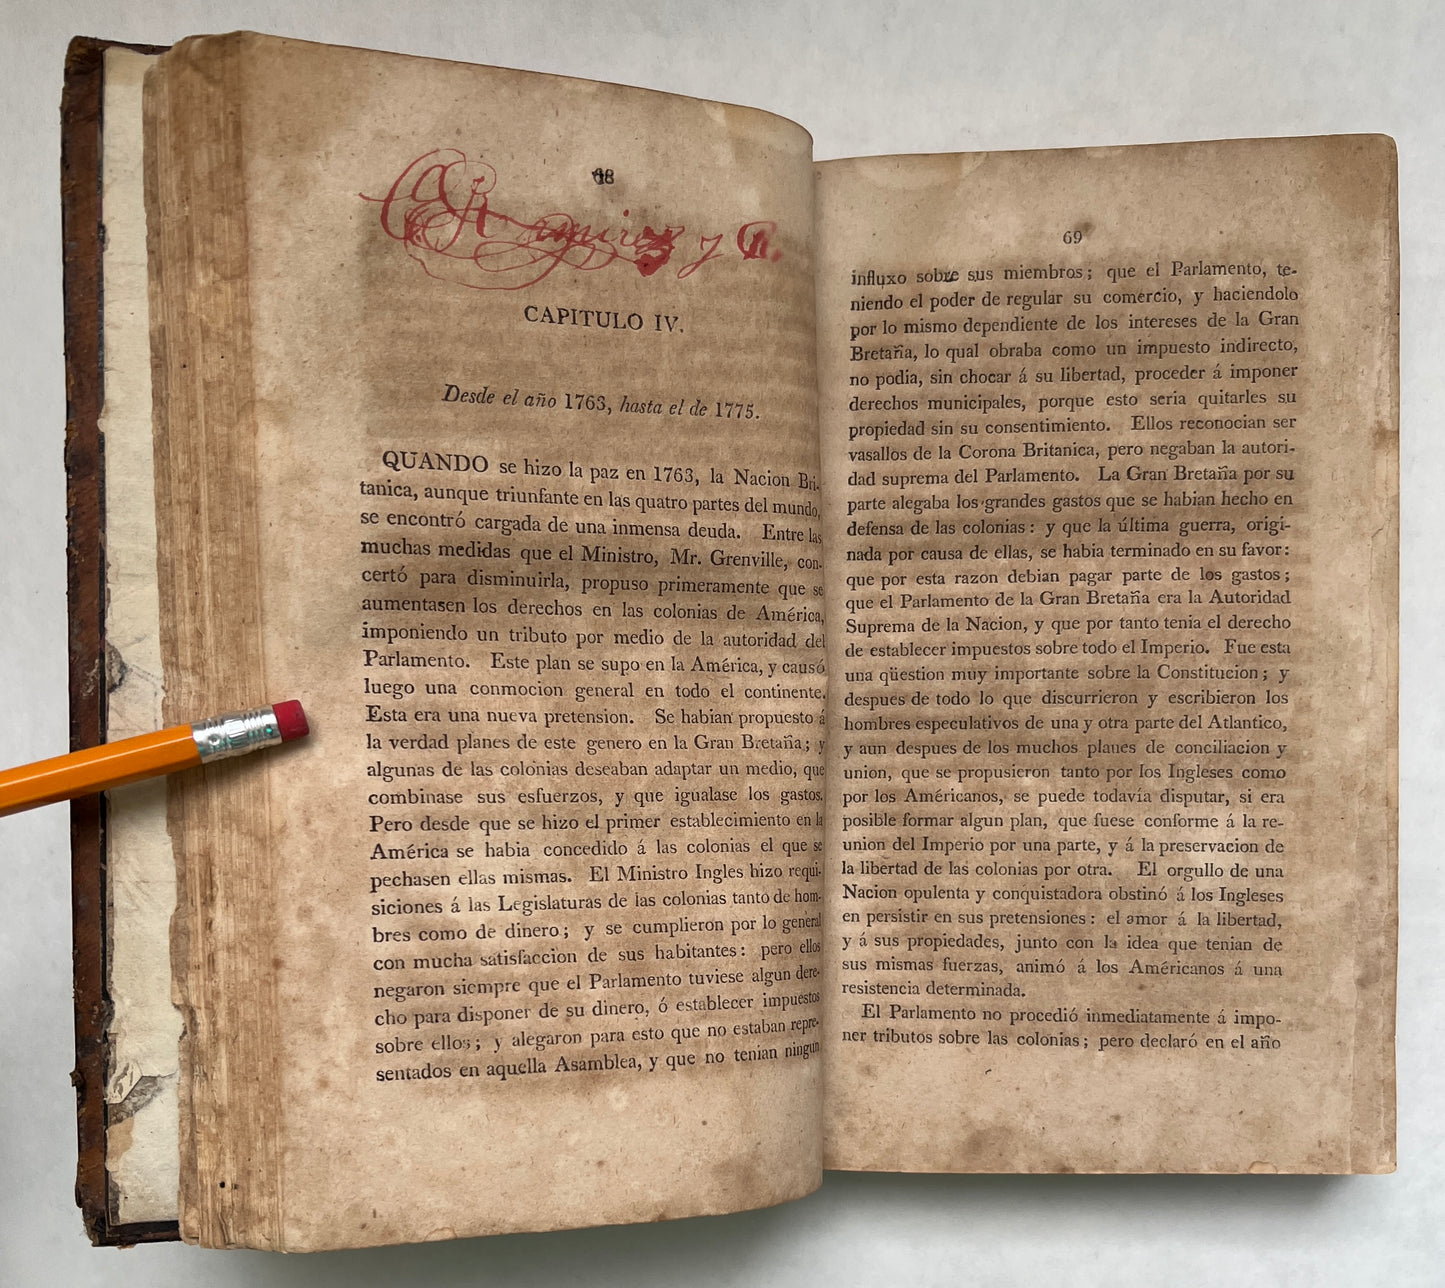 68
Ramirez y R.
CAPITULO IV.
Desde el año 1763, hasta el de 1775.
QUANDO se hizo la paz en 1763, la Nacion Bri-
tanica, aunque triunfante en las quatro partes del mundo,
se encontró cargada de una inmensa deuda. Entre las
muchas medidas que el Ministro, Mr. Grenville, con-
certó para disminuirla, propuso primeramente que se
aumentasen los derechos en las colonias de América,
imponiendo un tributo por medio de la autoridad del
Parlamento. Este plan se supo en la América, y causó
luego una conmocion general en todo el continente.
Esta era una nueva pretension. Se habian propuesto á
la verdad planes de este genero en la Gran Bretaña; y
algunas de las colonias deseaban adaptar un medio, que
combinase sus esfuerzos, y que igualase los gastos.
Pero desde que se hizo el primer establecimiento en la
América se habia concedido á las colonias el que se
pechasen ellas mismas. El Ministro Ingles hizo requi-
siciones á las Legislaturas de las colonias tanto de hom-
bres como de dinero; y se cumplieron por lo general
con mucha satisfaccion de sus habitantes: pero ellos
negaron siempre que el Parlamento tuviese algun dere-
cho para disponer de su dinero, ó establecer impuestos
sobre ellos; y alegaron para esto que no estaban repre-
sentados en aquella Asamblea, y que no tenian ningun
69
influxo sobre sus miembros; que el Parlamento, te-
niendo el poder de regular su comercio, y haciendolo
por lo mismo dependiente de los intereses de la Gran
Bretaña, lo qual obraba como un impuesto indirecto,
no podia, sin chocar á su libertad, proceder á imponer
derechos municipales, porque esto seria quitarles su
propiedad sin su consentimiento. Ellos reconocian ser
vasallos de la Corona Britanica, pero negaban la autori-
dad suprema del Parlamento. La Gran Bretaña por su
parte alegaba los grandes gastos que se habian hecho en
defensa de las colonias: y que la última guerra, origi-
nada por causa de ellas, se habia terminado en su favor:
que por esta razon debian pagar parte de los gastos;
que el Parlamento de la Gran Bretaña era la Autoridad
Suprema de la Nacion, y que por tanto tenia el derecho
de establecer impuestos sobre todo el Imperio. Fue esta
una qüestion muy importante sobre la Constitucion; y
despues de todo lo que discurrieron y escribieron los
hombres especulativos de una y otra parte del Atlantico,
y aun despues de los muchos planes de conciliacion y
union, que se propusieron tanto por los Ingleses como
por los Américanos, se puede todavía disputar, si era
posible formar algun plan, que fuese conforme á la re-
union del Imperio por una parte, y á la preservacion de
la libertad de las colonias por otra. El orgullo de una
Nacion opulenta y conquistadora obstinó á los Ingleses
en persistir en sus pretensiones: el amor á la libertad,
y á sus propiedades, junto con la idea que tenian de
sus mismas fuerzas, animó á los Américanos á una
resistencia determinada.
El Parlamento no procedió inmediatamente á impo-
ner tributos sobre las colonias; pero declaró en el año